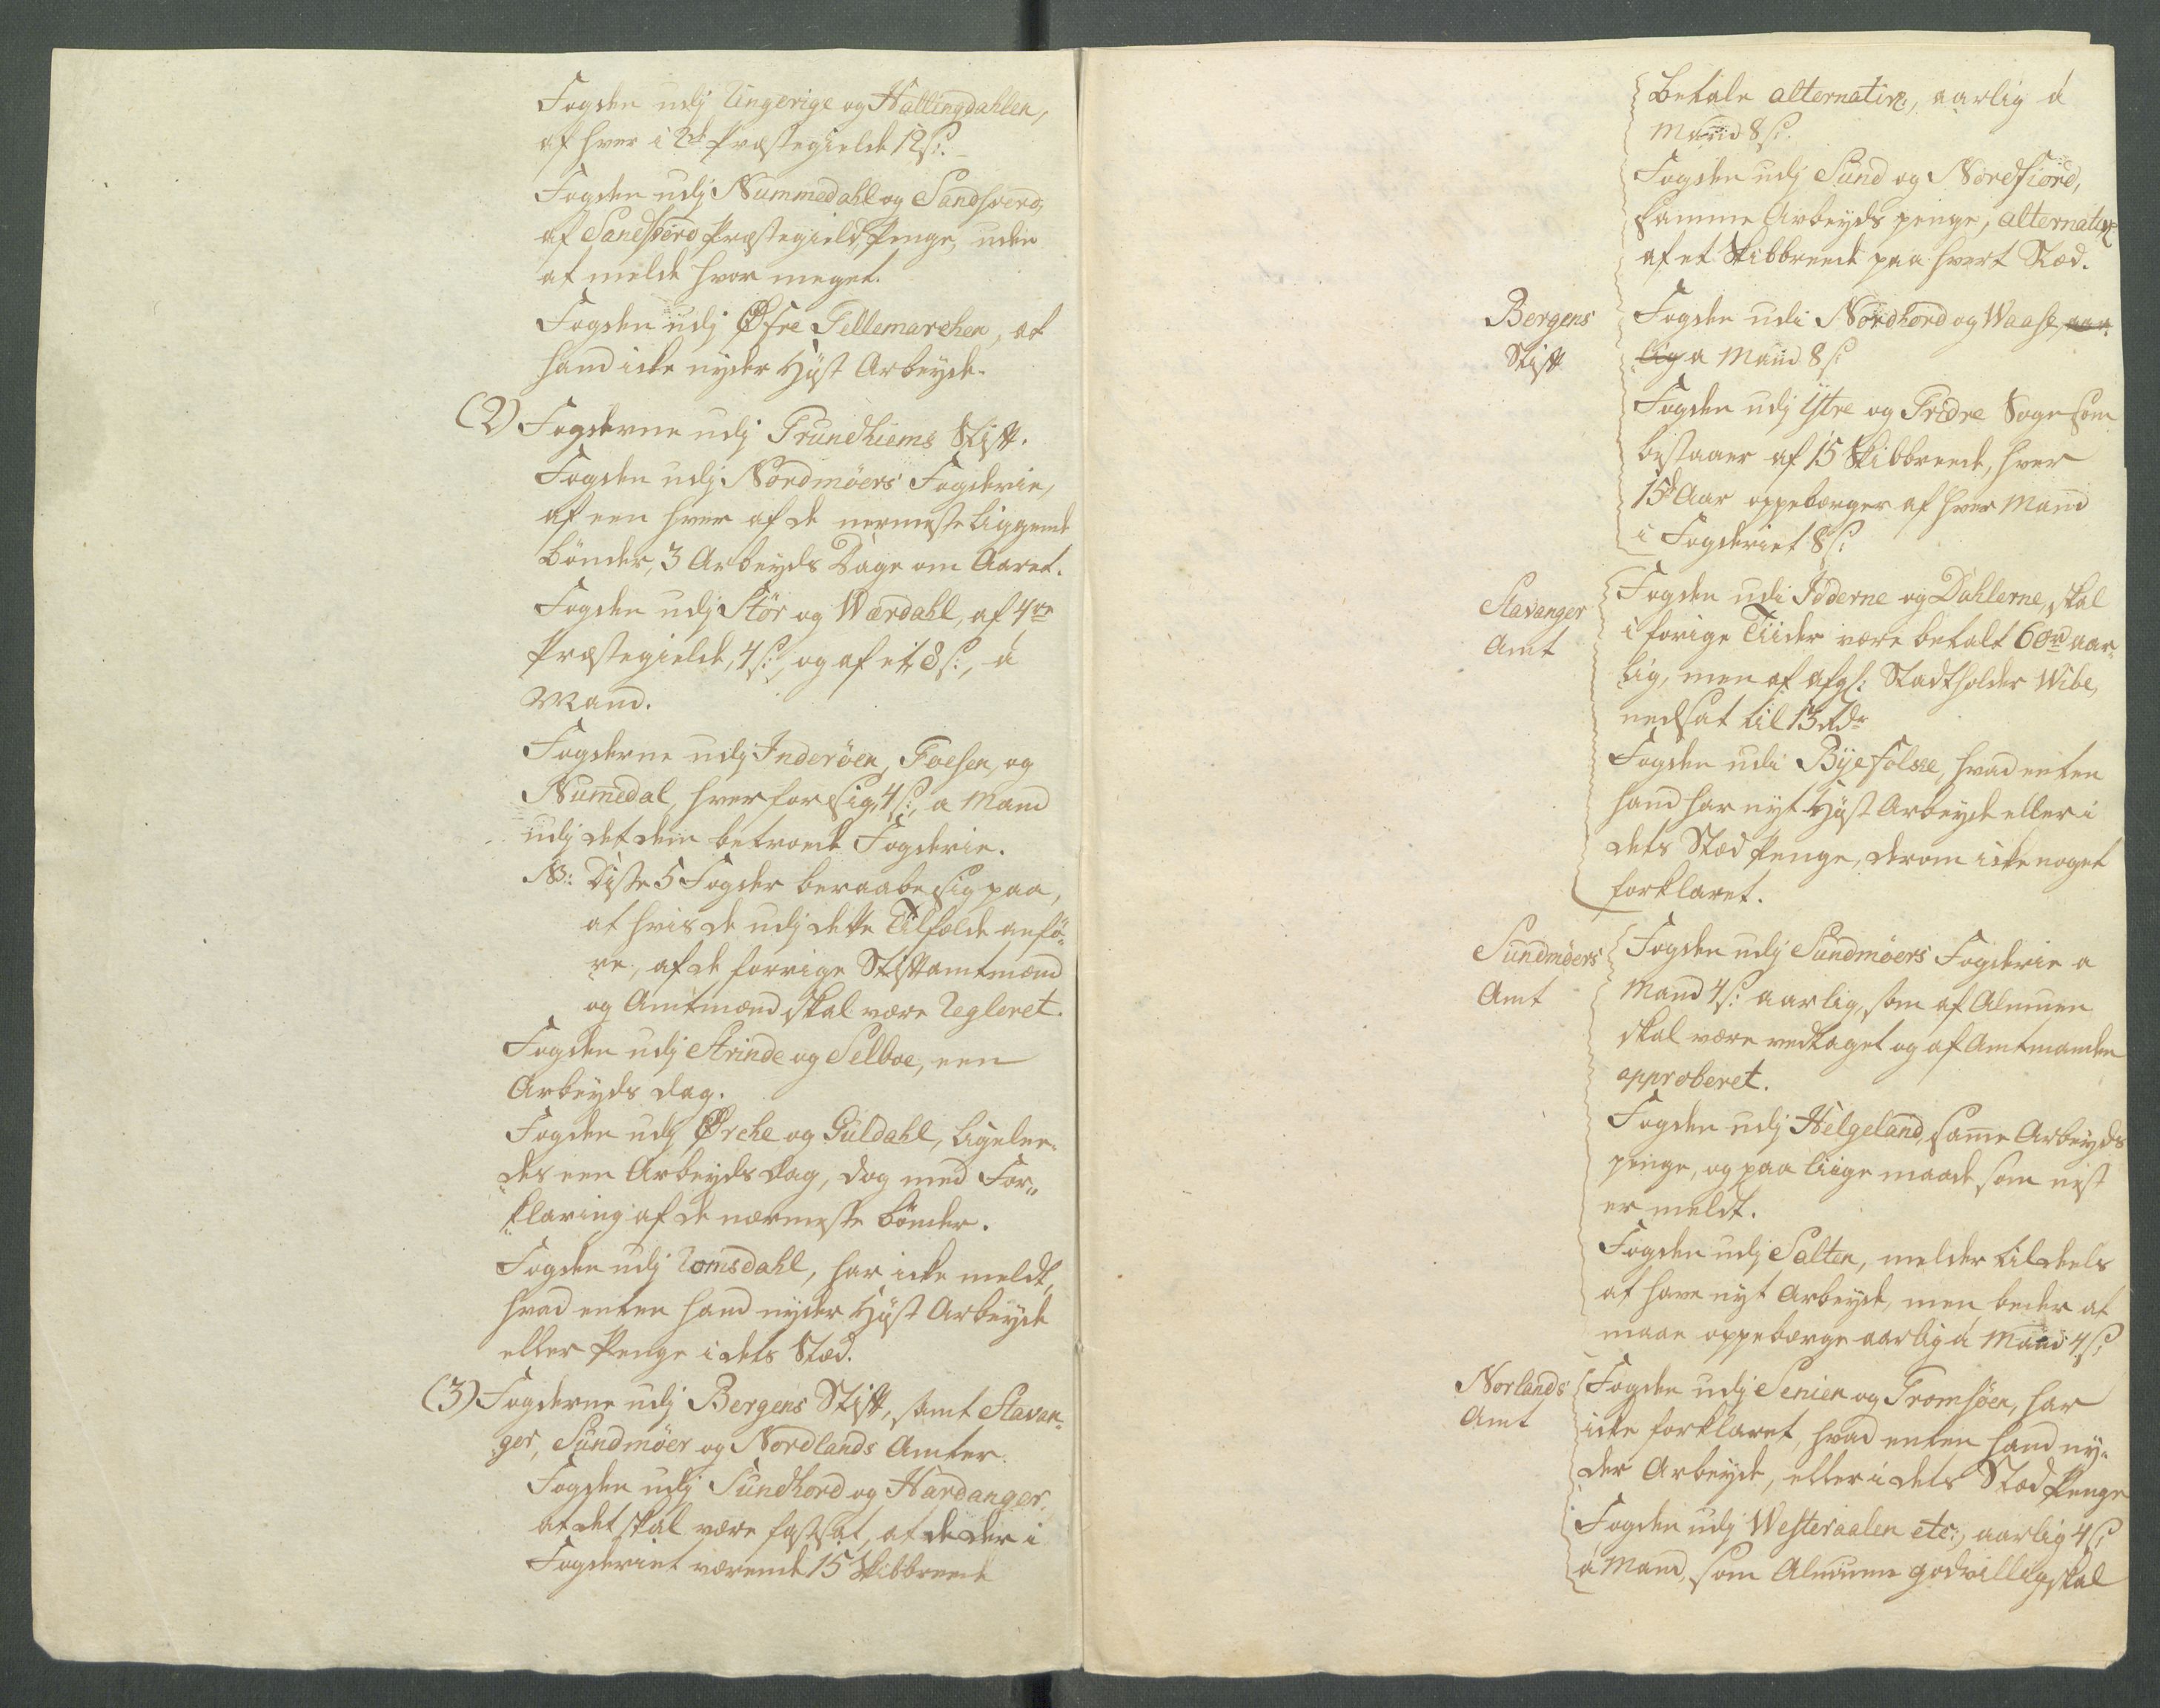 Fogden udj Ringerige og Hallingdahlen,
af hver i 2de Præstegielde 12 s:
Fogden udj Nummedahl og Sandsverd,
af Sandsverd Præstegield Penge, uden
at melde hvor meget.
Fogden udj Øfre Tellemarchen, at
hand icke nyder Høst Arbeyde.
(2) Fogderne udj Trundhiems Stift.
Fogden udj Nordmöers Fogderie,
af een hver af de nermeste liggende
bönder, 3 Arbeyds Dage om Aaret.
Fogden udj Stör og Werdahl, af 4re
Præstegielde, 4 s:, og af et 8 s:, á
Mand.
Fogderne udj Inderöen, Foesen, og
Numedal, hver for sig, 4 s:, a Mand
udj det dem betroede Fogderie.
NB: Disse 5 Fogder beraabe sig paa,
at hvis de udj dette Tilfælde anfö-
re, af de forrige Stiftamtmænd
og Amtmænd skal være Regleret.
Fogden udj Strinde og Selboe, een
Arbeyds dag.
Fogden udj Ørche og Guldahl, ligele-
des een Arbeyds dag, dog med For-
klaring af de nærmeste bönder.
Fogden udj Romsdahl, har icke meldt,
hvad enten hand nyder Høst Arbeyde
eller Penge i dets Stæd.
(3) Fogderne udj Bergens Stift, samt Stavan-
ger, Sundmöer og Nordlands Amter.
Fogden udj Sundhord og Hardanger.
at det skal være fastsat, at de der i
Fogderiet værende 15 Skibbrede
betale alternative, aarlig á
Mand 8 s:
Fogden udj Sund og Nordfiord,
samme Arbeyds penge, alternative
af et Skibbrede paa hvert Stæd.
Bergens
Stift
Fogden udi Nordhord og Waasse, aar-
lig a Mand 8 s:
Fogden udj Ytre og Indre Sogn som
bestaaer af 15 Skibbrede, hver
15de Aar oppebærger af hver Mand
i Fogderiet 8 s:
Stavanger
Amt
Fogden udi Jæderne og Dahlerne, skal
i forige Tiider være betalt 60 rd aar-
lig, men af afg: Stadtholder Wibe,
nedsat til 13 rdr
Fogden udi Ryefölcke, hvad enten
hand har nyt Høst Arbeyde eller i
dets Stæd Penge, derom icke noget
forklaret.
Sundmöers
Amt
Fogden udj Sundmöers Fogderie a
Mand 4 s: aarlig, som af Almuen
skal være vedtaget og af Amtmanden
approberet.
Fogden udj Helgeland, samme Arbeyds
penge, og paa liige maade som nest
er meldt.
Fogden udj Salten, melder tildeels
at have nyt Arbeyde, men beder at
maae oppebærge aarlig á Mand 4 s:
Norlands
Amt
Fogden udj Senien og Tromsöen, har
icke forklaret, hvad enten hand ny-
der Arbeyde, eller i dets Stæd Penge
Fogden udj Westeraalen etc:, aarlig 4 s:
á Mand, som Almuen godvillig skal